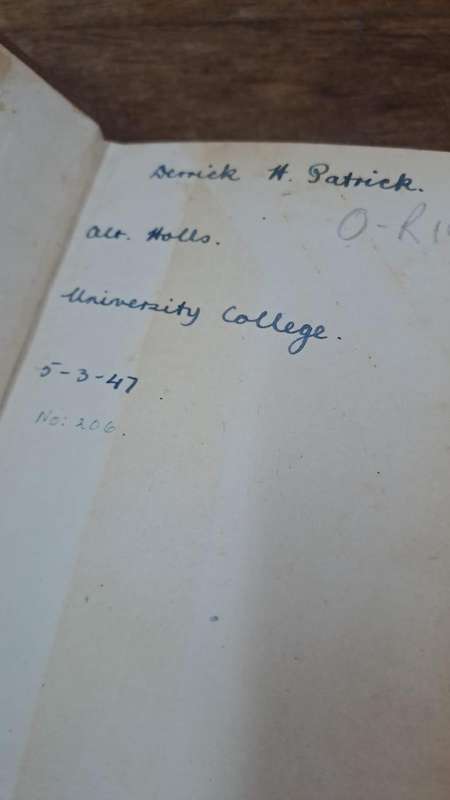 Derrick H. Patrick.
O-R
Alr. Holls.
University College.
5-3-47
No: 206.